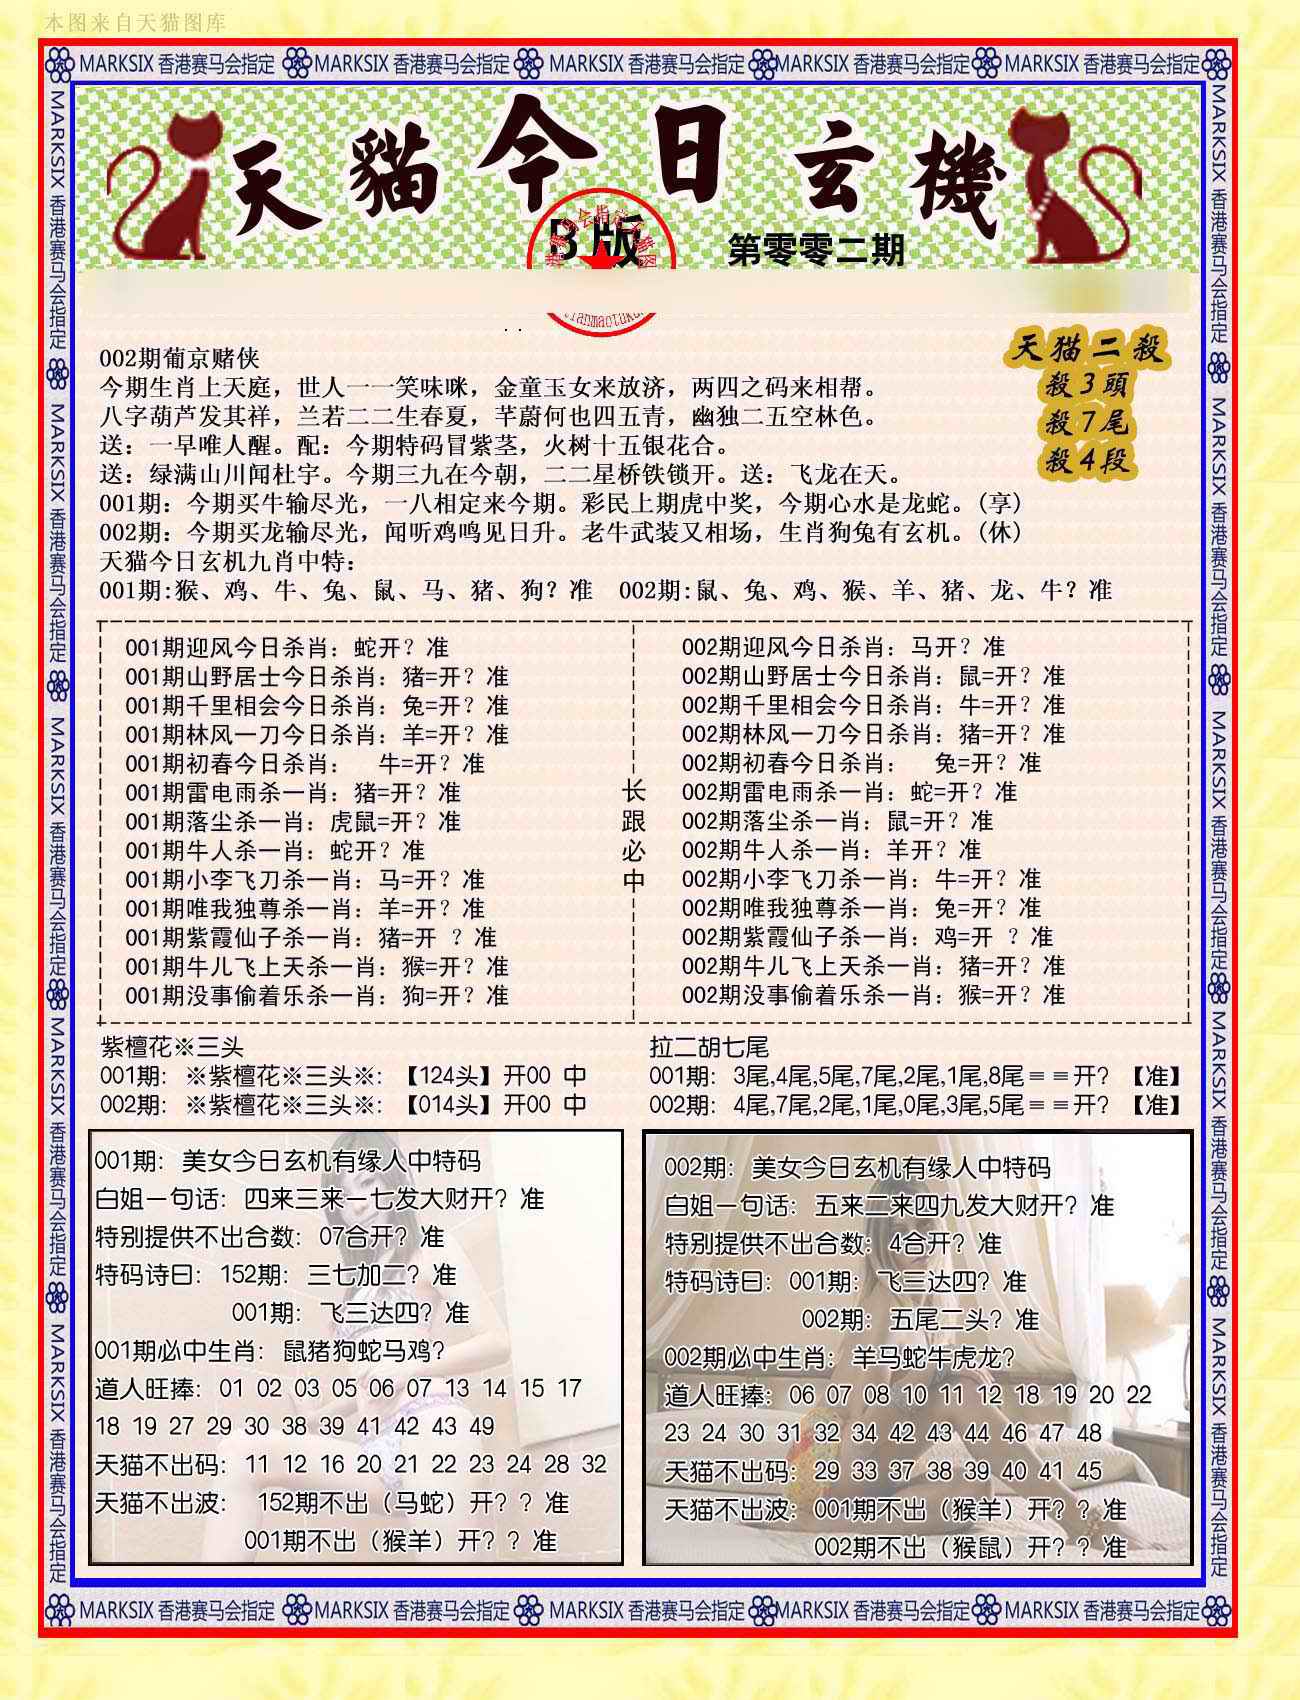 本图来自天猫图库
MARKSIX 香港赛马会指定 MARKSIX 香港赛马会指定 MARKSIX 香港赛马会指定 MARKSIX 香港赛马会指定 MARKSIX 香港赛马会指定
天貓今日玄機
B版
第零零二期
天猫二殺
殺3頭
殺7尾
殺4段
002期葡京赌侠
今期生肖上天庭，世人一一笑味咪，金童玉女来放济，两四之码来相帮。
八字葫芦发其祥，兰若二二生春夏，芊蔚何也四五青，幽独二五空林色。
送：一早唯人醒。配：今期特码冒紫茎，火树十五银花合。
送：绿满山川闻杜宇。今期三九在今朝，二二星桥铁锁开。送：飞龙在天。
001期：今期买牛输尽光，一八相定来今期。彩民上期虎中奖，今期心水是龙蛇。(享)
002期：今期买龙输尽光，闻听鸡鸣见日升。老牛武装又相场，生肖狗兔有玄机。(休)
天猫今日玄机九肖中特：
001期:猴、鸡、牛、兔、鼠、马、猪、狗？准 002期:鼠、兔、鸡、猴、羊、猪、龙、牛？准
001期迎风今日杀肖：蛇开？准
001期山野居士今日杀肖：猪=开？准
001期千里相会今日杀肖：兔=开？准
001期林风一刀今日杀肖：羊=开？准
001期初春今日杀肖： 牛=开？准
001期雷电雨杀一肖：猪=开？准
001期落尘杀一肖：虎鼠=开？准
001期牛人杀一肖：蛇开？准
001期小李飞刀杀一肖：马=开？准
001期唯我独尊杀一肖：羊=开？准
001期紫霞仙子杀一肖：猪=开 ？准
001期牛儿飞上天杀一肖：猴=开？准
001期没事偷着乐杀一肖：狗=开？准
长跟必中
002期迎风今日杀肖：马开？准
002期山野居士今日杀肖：鼠=开？准
002期千里相会今日杀肖：牛=开？准
002期林风一刀今日杀肖：猪=开？准
002期初春今日杀肖： 兔=开？准
002期雷电雨杀一肖：蛇=开？准
002期落尘杀一肖：鼠=开？准
002期牛人杀一肖：羊开？准
002期小李飞刀杀一肖：牛=开？准
002期唯我独尊杀一肖：兔=开？准
002期紫霞仙子杀一肖：鸡=开 ？准
002期牛儿飞上天杀一肖：猪=开？准
002期没事偷着乐杀一肖：猴=开？准
紫檀花※三头
001期：※紫檀花※三头※：【124头】开00 中
002期：※紫檀花※三头※：【014头】开00 中
拉二胡七尾
001期：3尾,4尾,5尾,7尾,2尾,1尾,8尾＝＝开？【准】
002期：4尾,7尾,2尾,1尾,0尾,3尾,5尾＝＝开？【准】
001期：美女今日玄机有缘人中特码
白姐一句话：四来三来一七发大财开？准
特别提供不出合数：07合开？准
特码诗曰：152期：三七加二？准
001期：飞三达四？准
001期必中生肖：鼠猪狗蛇马鸡？
道人旺捧：01 02 03 05 06 07 13 14 15 17
18 19 27 29 30 38 39 41 42 43 49
天猫不出码：11 12 16 20 21 22 23 24 28 32
天猫不出波： 152期不出（马蛇）开？？准
001期不出（猴羊）开？？准
002期：美女今日玄机有缘人中特码
白姐一句话：五来二来四九发大财开？准
特别提供不出合数：4合开？准
特码诗曰：001期：飞三达四？准
002期：五尾二头？准
002期必中生肖：羊马蛇牛虎龙？
道人旺捧：06 07 08 10 11 12 18 19 20 22
23 24 30 31 32 34 42 43 44 46 47 48
天猫不出码：29 33 37 38 39 40 41 45
天猫不出波：001期不出（猴羊）开？？准
002期不出（猴鼠）开？？准
MARKSIX 香港赛马会指定 MARKSIX 香港赛马会指定 MARKSIX 香港赛马会指定 MARKSIX 香港赛马会指定 MARKSIX 香港赛马会指定
MARKSIX 香港赛马会指定 MARKSIX 香港赛马会指定 MARKSIX 香港赛马会指定 MARKSIX 香港赛马会指定 MARKSIX 香港赛马会指定
MARKSIX 香港赛马会指定 MARKSIX 香港赛马会指定 MARKSIX 香港赛马会指定 MARKSIX 香港赛马会指定 MARKSIX 香港赛马会指定